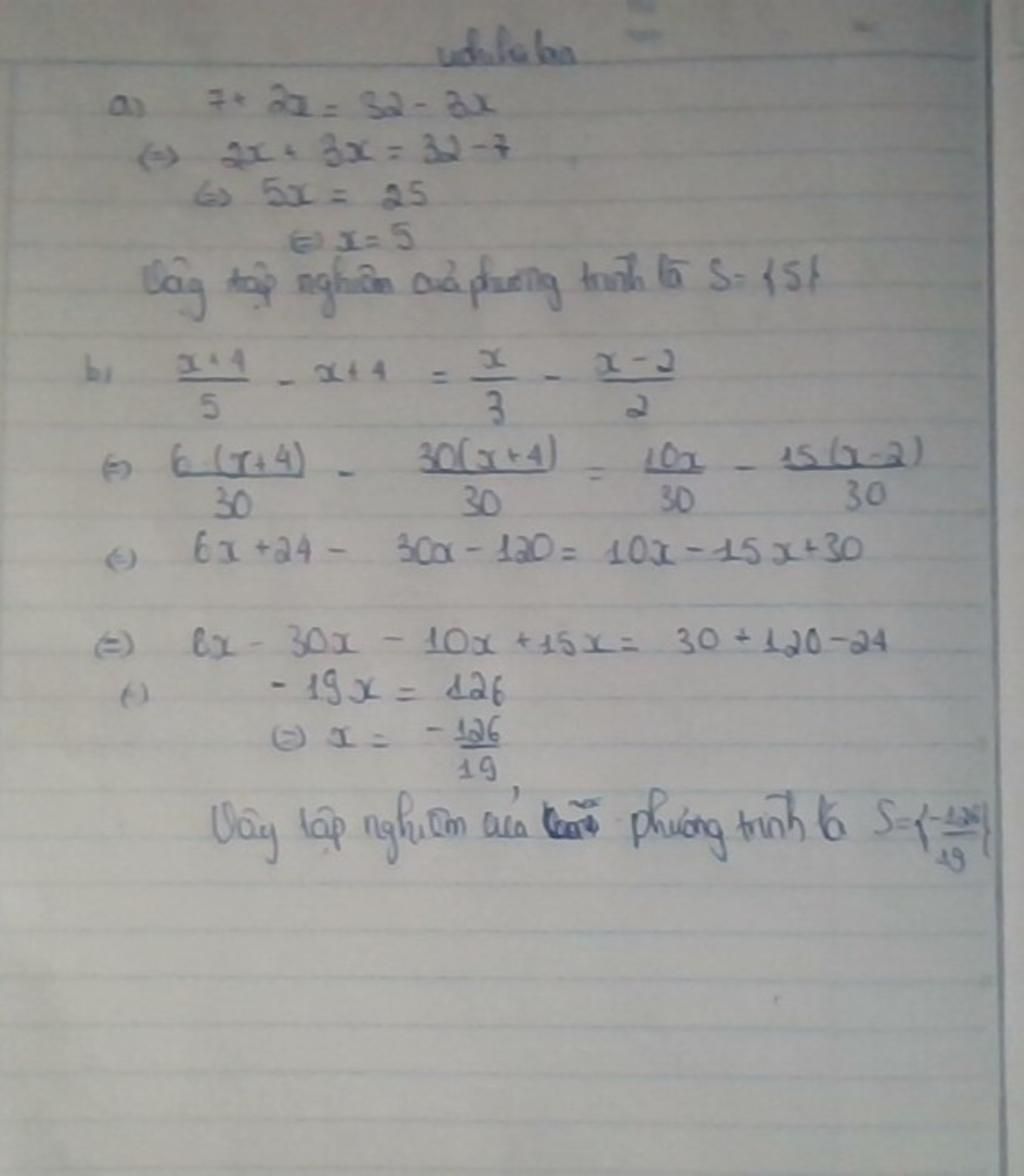 a) 7 + 2x = 32 - 3x
(=) 2x + 3x = 32 - 7
(=) 5x = 25
(=) x = 5
Vậy tập nghiệm của phương trình là S = {5}
b) \frac{x+4}{5} - x + 4 = \frac{x}{3} - \frac{x-2}{2}
(=) \frac{6.(x+4)}{30} - \frac{30(x+4)}{30} = \frac{10x}{30} - \frac{15(x-2)}{30}
(=) 6x + 24 - 30x - 120 = 10x - 15x + 30
(=) 6x - 30x - 10x + 15x = 30 + 120 - 24
(=) - 19x = 126
(=) x = - \frac{126}{19}
Vậy tập nghiệm của phương trình là S = {\frac{-126}{19}}